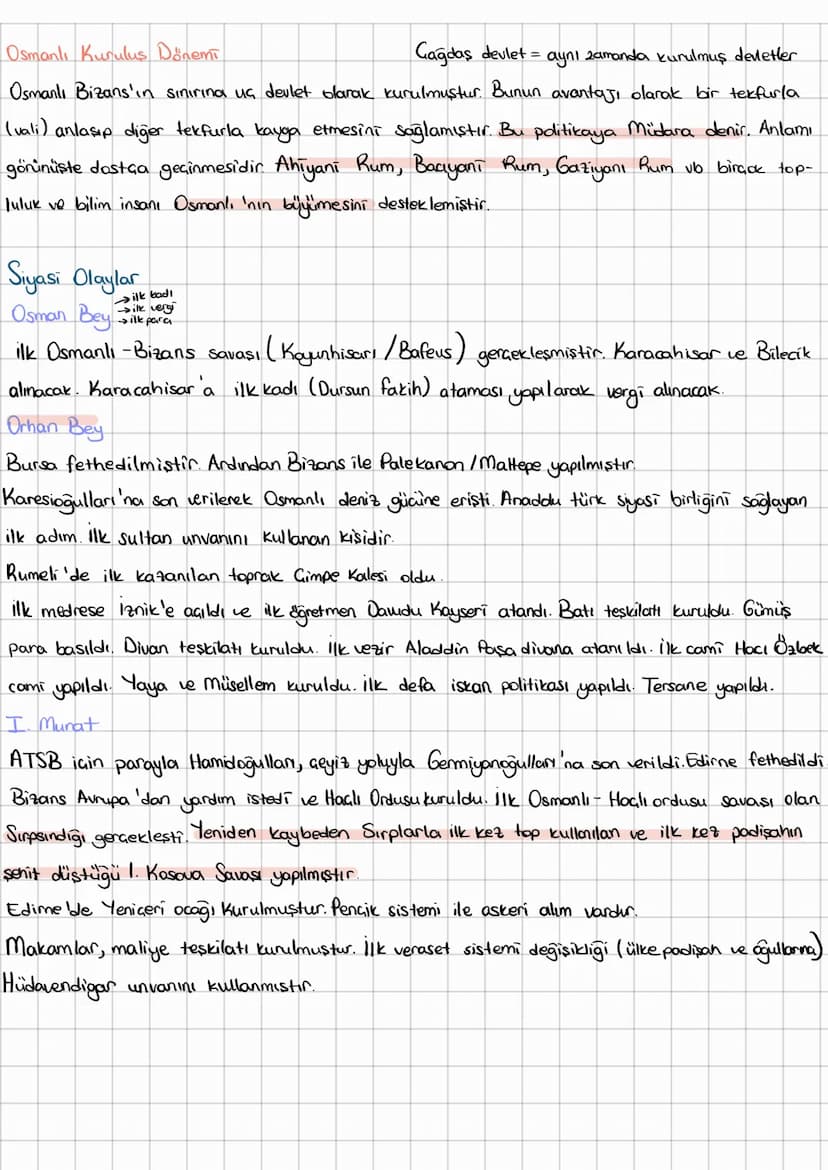 Osmanlı Kuruluş Dönemi
Çağdaş devlet = aynı zamanda kurulmuş devletler
Osmanlı Bizans'ın sınırına uç devlet olarak kurulmuştur. Bunun avantajı olarak bir tekfurla
(vali) anlaşıp diğer tekfurla kavga etmesini sağlamıştır. Bu politikaya Müdara denir. Anlamı
görünüşte dostça geçinmesidir. Ahiyani Rum, Bacıyani Rum, Gaziyanı Rum vb birçok top-
luluk ve bilim insanı Osmanlı 'nın büyümesini desteklemiştir.
Siyasi Olaylar
Osman Bey
→ ilk kadı
→ ilk vergi
→ ilk para
ilk Osmanlı - Bizans savaşı (Koyunhisarı / Bafeus) gerçekleşmiştir. Karacahisar ve Bilecik
alınacak. Karacahisar'a ilk kadı (Dursun fakih) ataması yapılarak vergi alınacak.
Orhan Bey
Bursa fethedilmiştir. Ardından Bizans ile Palekanon / Maltepe yapılmıştır.
Karesioğulları'na son verilerek Osmanlı deniz gücüne erişti. Anadolu türk siyasi birliğini sağlayan
ilk adım. İlk sultan unvanını kullanan kişidir.
Rumeli'de ilk kazanılan toprak Çimpe Kalesi oldu.
ilk medrese iznik'e açıldı ve ilk öğretmen Davudu Kayseri atandı. Batı teşkilatı kuruldu. Gümüş
para basıldı. Divan teşkilatı kuruldu. İlk vezir Alaaddin Paşa divana atanıldı. İlk cami Hacı Özbek
cami yapıldı. Yaya ve Müsellem kuruldu. ilk defa iskan politikası yapıldı. Tersane yapıldı.
I. Murat
ATSB için parayla Hamidoğulları, çeyiz yoluyla Germiyanoğulları'na son verildi. Edirne fethedildi
Bizans Avrupa'dan yardım istedi ve Haçlı Ordusu kuruldu. İlk Osmanlı - Haçlı ordusu savaşı olan
Sırpsındığı gerçekleşti. Yeniden kaybeden Sırplarla ilk kez top kullanılan ve ilk kez padişahın
şehit düştüğü 1. Kosova Savaşı yapılmıştır.
Edirne'de Yeniçeri ocağı kurulmuştur. Pençik sistemi ile askeri alım vardır.
Makamlar, maliye teşkilatı kurulmuştur. İlk veraset sistemi değişikliği (ülke padişah ve oğullarına)
Hüdavendigar unvanını kullanmıştır.